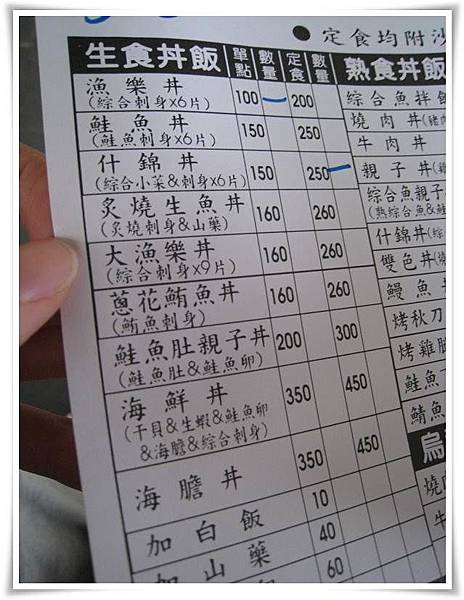 ● 定食均附沙
生食丼飯 單點 數量 定食 數量 熟食丼飯
漁樂丼 100 200
(綜合刺身x6片)
鮭魚丼 150 250
(鮭魚刺身x6片)
什錦丼 150 250
(綜合小菜&刺身x6片)
炙燒生魚丼 160 260
(炙燒刺身&山藥)
大漁樂丼 160 260
(綜合刺身×9片)
蔥花鮪魚丼 160 260
(鮪魚刺身)
鮭魚肚親子丼 200 300
(鮭魚肚&鮭魚卵)
海鮮丼 350 450
(干貝&生蝦&鮭魚卵
&海膽&綜合刺身)
海膽丼 350 450
加白飯 10
加山藥 40
60
綜合魚拌飯
燒肉丼(豬肉
牛肉丼
親子丼(雞
綜合魚親子
(熟綜合魚&鮭
什錦丼(綜
雙色丼(燒
鰻魚丼
烤秋刀
烤雞腿
鮭魚
鯖魚
烏
燒肉
牛